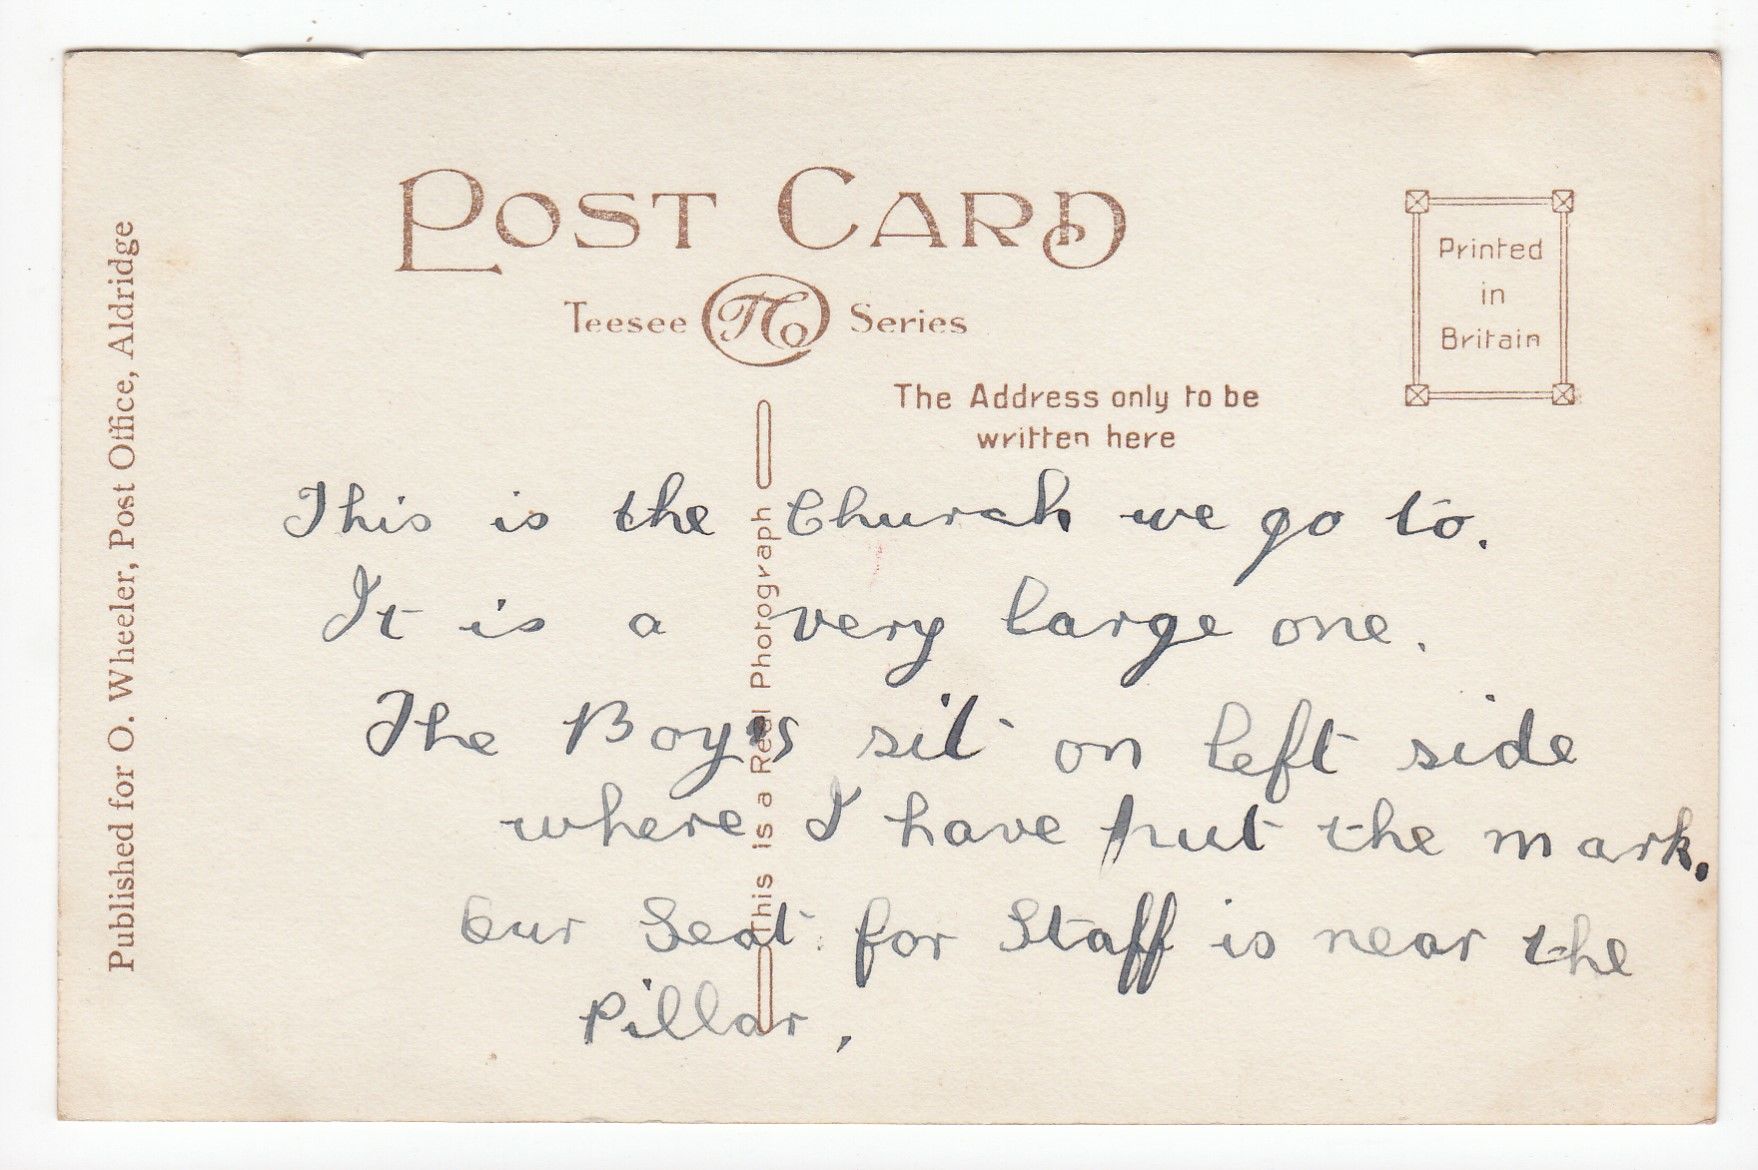 POST CARD
Teesee TCo Series
Printed
in
Britain
The Address only to be
written here
This is the Church we go to.
It is a very large one.
The Boys sit on left side
where I have put the mark.
Our Seat for Staff is near the
Pillar.
This is a Real Photograph
Published for O. Wheeler, Post Office, Aldridge